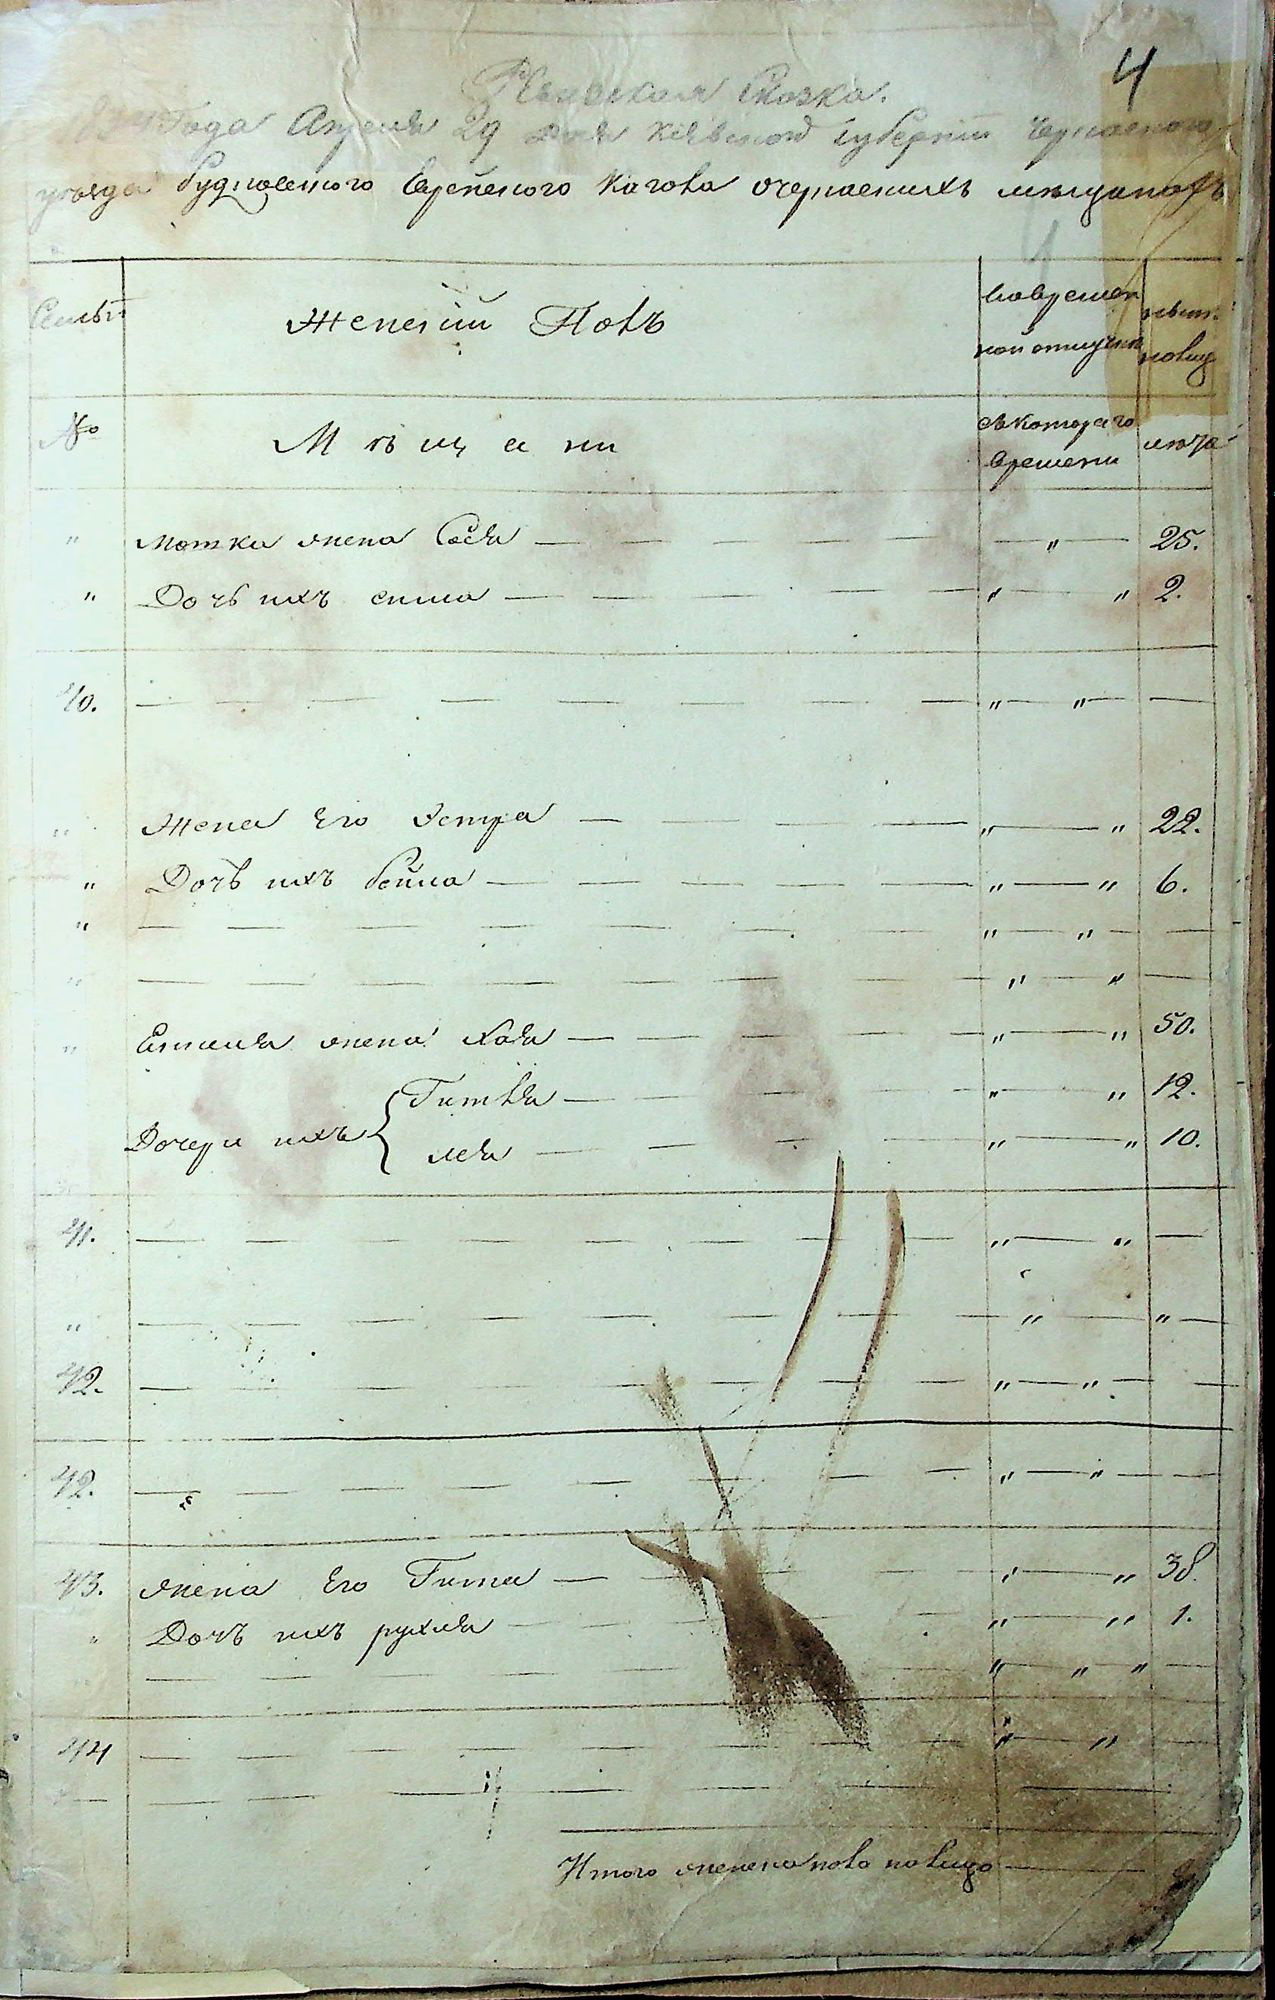 4
Ревизская Сказка.
Года Апреля 29 дня Киевской губернии Черкаского
уезда Еврейского Кагола очеркаскихъ мещанахъ
Семьи
Женский Полъ
Вовремен
ной отлучке
ныне
налицо
№
Мещане
съ котораго
времени
лета
" Мошки жена Сося — " — 25.
" Дочь ихъ сима — " " 2.
40. — " — " —
" Жена Его Эстра — " — " 22.
" Дочь ихъ бейла — " — " 6.
" — " — " —
" — " — " —
" жена Хая — " — " 50.
Дочери ихъ { Гитля — " — " 12.
лея — " — " 10.
41. — " — " —
" — " — " —
42. — " — " —
42. — " — " —
43. жена Его Гитла — " — " 38.
" Дочь ихъ рухля — " — " 1.
" — " — " — " —
44 — " — " —
Итого женска пола налицо —